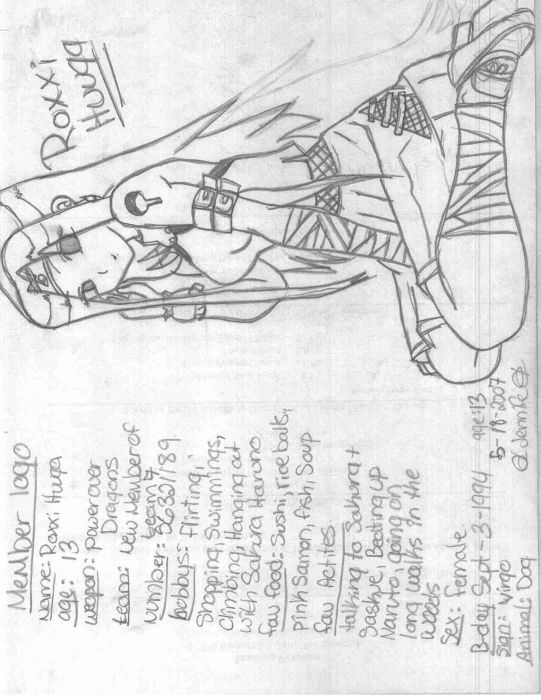 Member logo
Name: Roxxi Huga
age: 13
wepon: power over
Dragons
team: New Member of
team 7
number: 0632/189
hobbys: Flirting,
Shopping, Swimmings,
Climbing, Hanging out
with Sakura Haruno
fav food: Sushi, rice balls,
pink Samon, fish, Soup
fav Actites
talking to Sakura +
Saskue, Beating up
Naruto, going on
long walks in the
woods
Sex: Female
B-day Sept-3-1994 age:13
Sign: Virgo
Animal: Dog
5-18-2007
Roxxi
Huuga